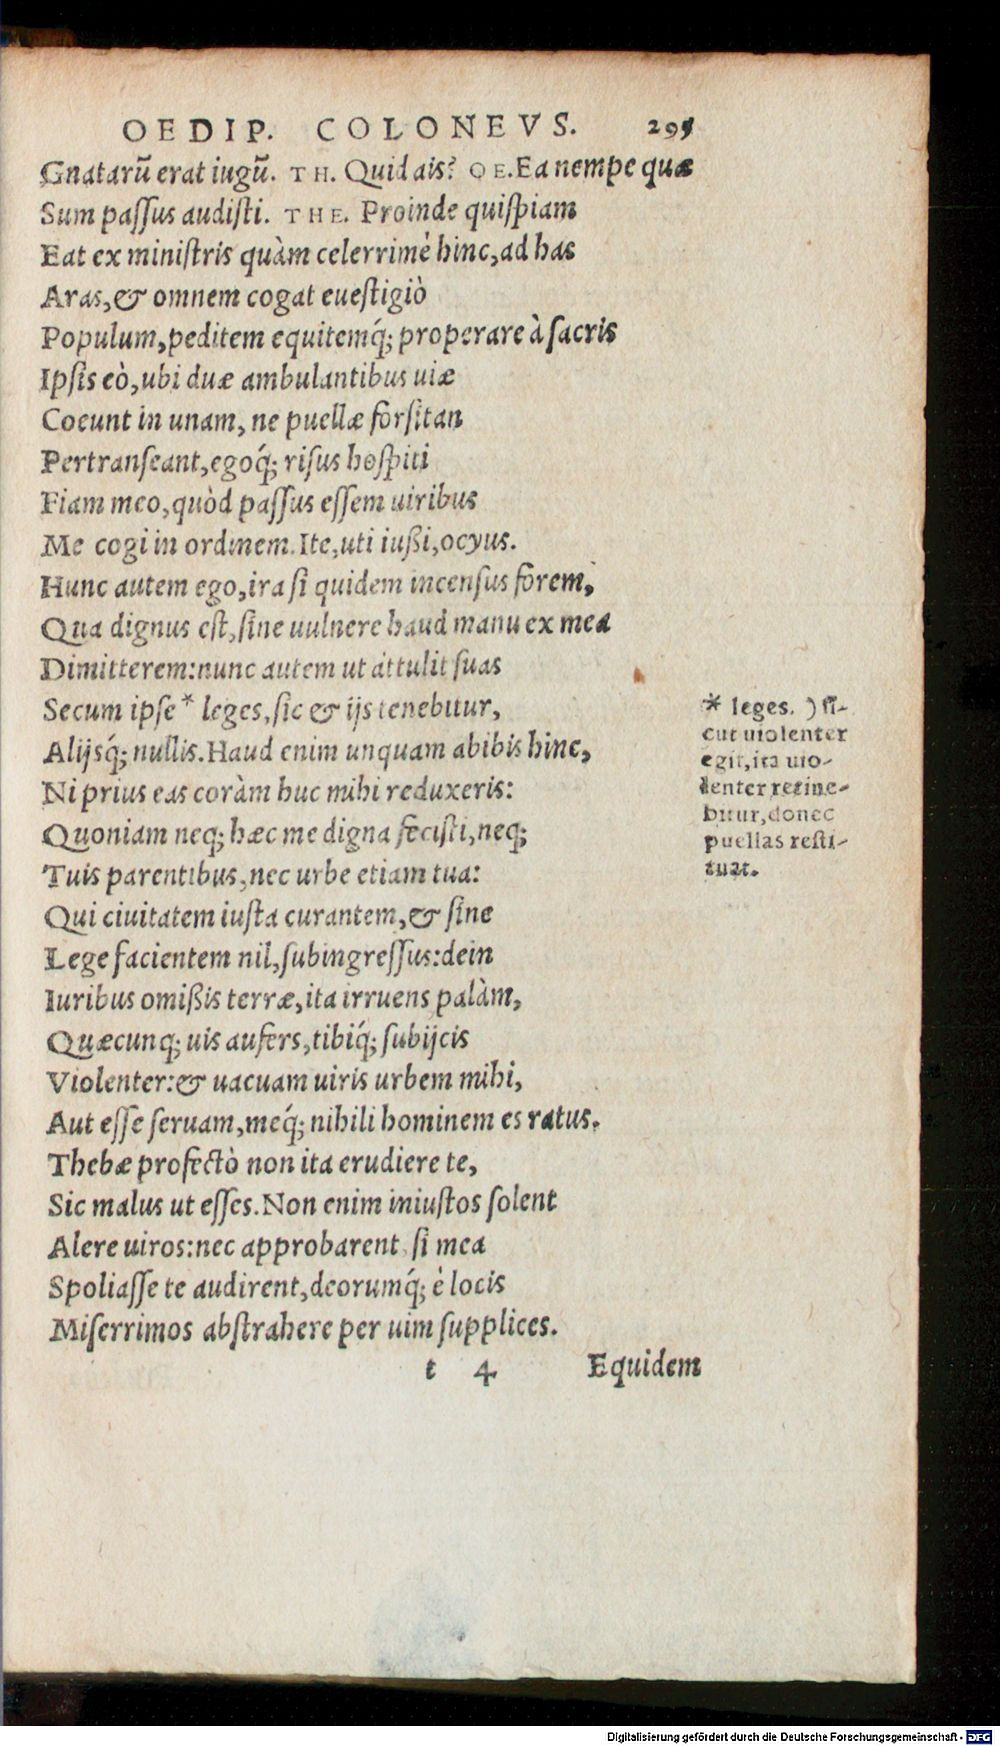 OEDIP. COLONEVS. 295
Gnatarũ erat iugũ. TH. Quid ais? OE. Ea nempe quæ
Sum paſſus audiſti. THE. Proinde quiſpiam
Eat ex miniſtris quàm celerrimè hinc, ad has
Aras, & omnem cogat eueſtigiò
Populum, peditem equitemq́; properare à ſacris
Ipſis eò, ubi duæ ambulantibus uiæ
Coeunt in unam, ne puellæ forſitan
Pertranſeant, egoq́; riſus hoſpiti
Fiam meo, quòd paſſus eſſem uiribus
Me cogi in ordinem. Ite, uti iußi, ocyus.
Hunc autem ego, ira ſi quidem incenſus forem,
Qua dignus eſt, ſine uulnere haud manu ex mea
Dimitterem: nunc autem ut attulit ſuas
Secum ipſe * leges, ſic & ijs tenebitur,
Alijsq́; nullis. Haud enim unquam abibis hinc,
Ni prius eas coràm huc mihi reduxeris:
Quoniam neq; hæc me digna feciſti, neq;
Tuis parentibus, nec urbe etiam tua:
Qui ciuitatem iuſta curantem, & ſine
Lege facientem nil, ſubingreſſus: dein
Iuribus omißis terræ, ita irruens palàm,
Quæcunq; uis aufers, tibiq́; ſubijcis
Violenter: & uacuam uiris urbem mihi,
Aut eſſe ſeruam, meq́; nihili hominem es ratus.
Thebæ profectò non ita erudiere te,
Sic malus ut eſſes. Non enim iniuſtos ſolent
Alere uiros: nec approbarent ſi mea
Spoliaſſe te audirent, deorumq́; è locis
Miſerrimos abſtrahere per uim ſupplices.
t 4 Equidem
* leges. ) ſi-
cut uiolenter
egit, ita uio-
lenter retine-
bitur, donec
puellas reſti-
tuat.
Digitalisierung gefördert durch die Deutsche Forschungsgemeinschaft - DFG